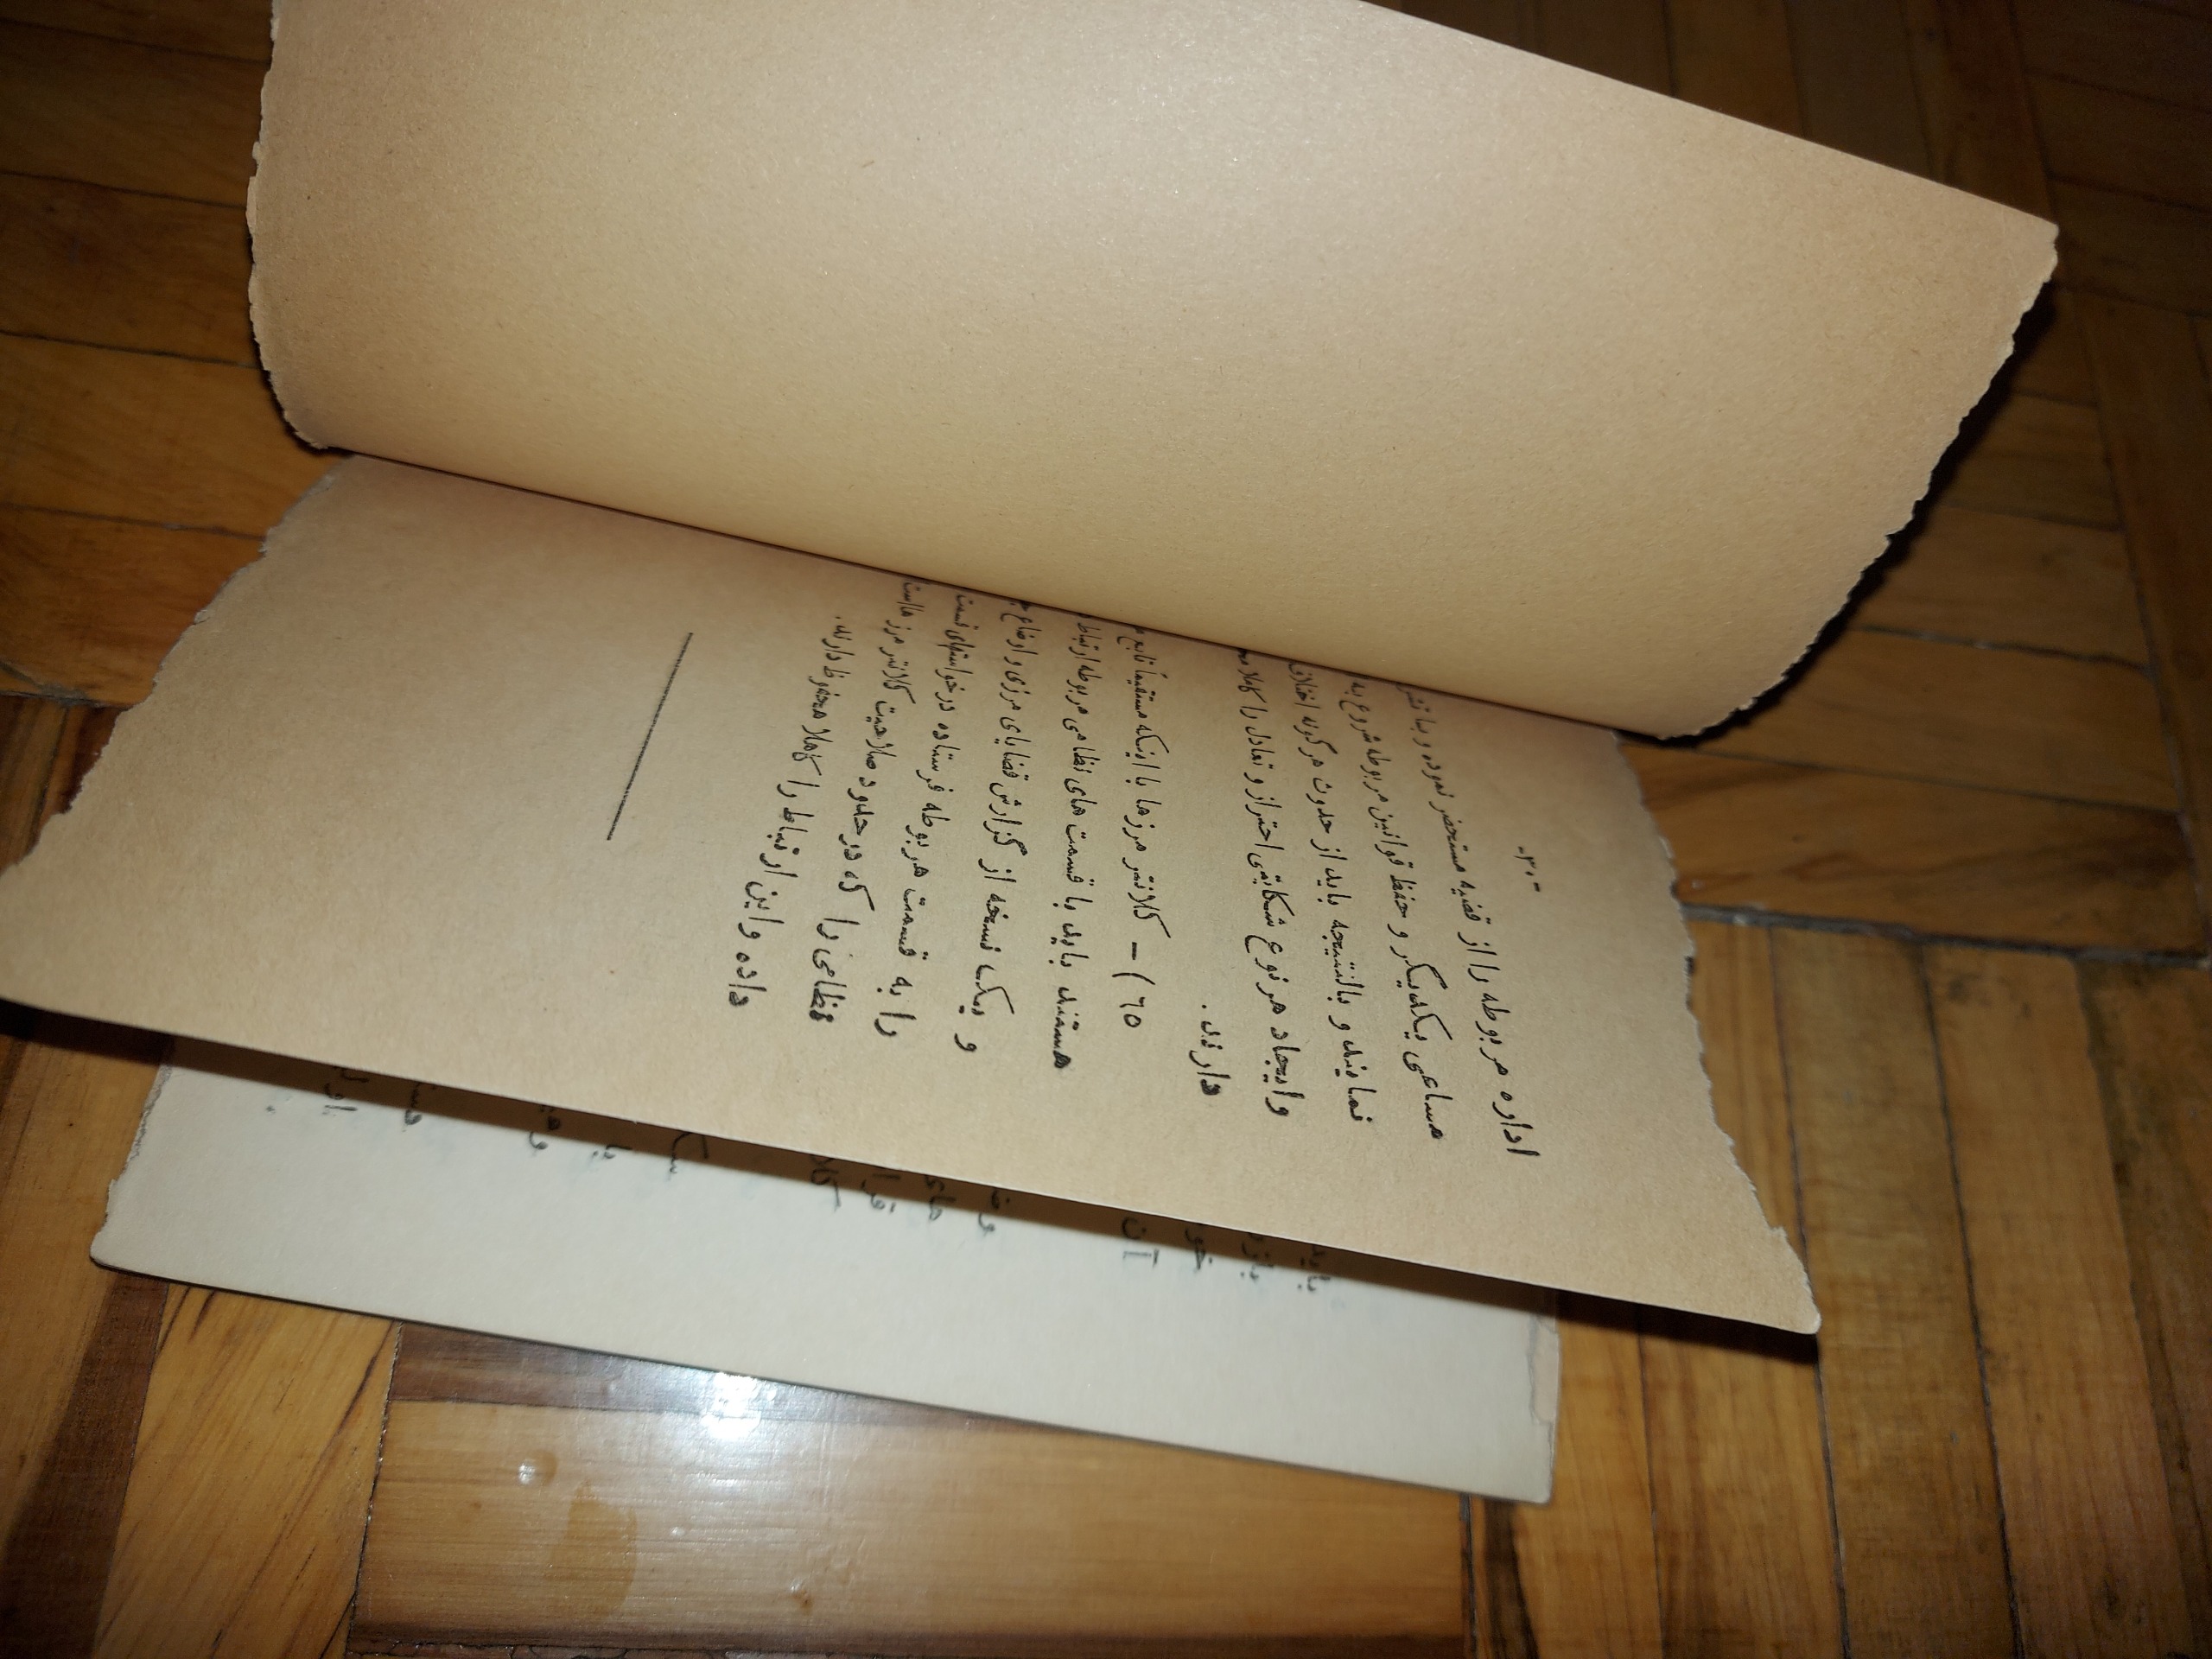 -۳۰-
اداره مربوطه را از قضیه مستحضر نموده و با تشر
مساعی یکدیگر و حفظ قوانین مربوطه شروع به
نمایند و بالنتیجه باید از حدوث هر گونه اختلاف
وایجاد هر نوع شکایتی احتراز و تعادل را کاملا
دارند.
٦٥) - کلانتر مرزها با اینکه مستقیماً تابع
هستند باید با قسمت های نظامی مربوطه ارتباط
و یک نسخه از گزارش قضایای مرزی و اوضاع
را به قسمت مربوطه فرستاده درخواستهای قسمت
نظامی را که در حدود صلاحیت کلانتر مرزهااست
داده و این ارتباط را کاملا محفوظ دارند.
باید
خو
آن
های
قرا
کلا